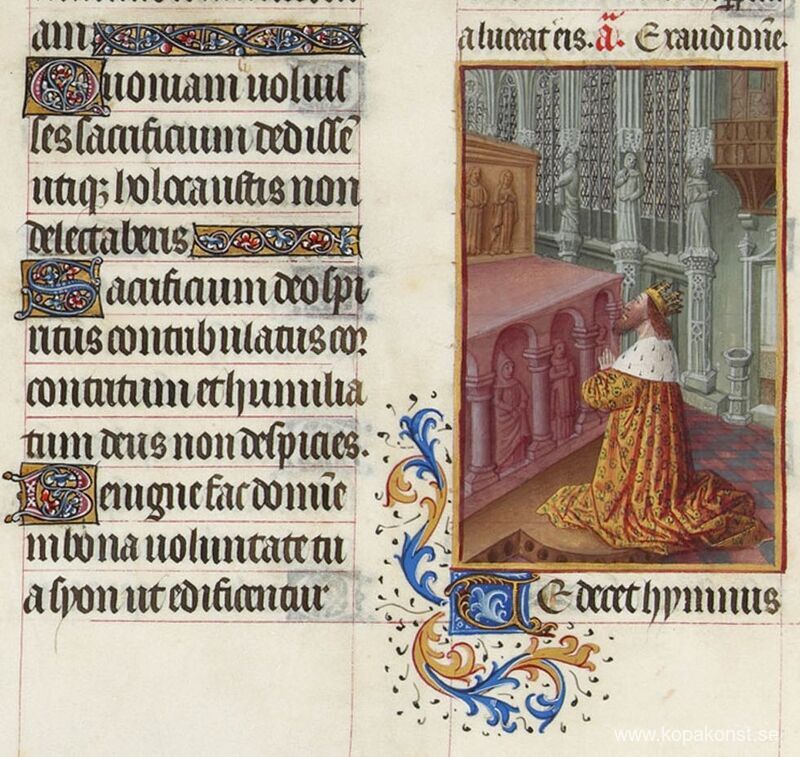 am
Quoniam uoluis
ses sacrificium dedissē
utiqȝ holocaustis non
delectaberis
Sacrificium deo spi
ritus contribulatus cor
contritum et humilia
tum deus non despicies.
Benigne fac domine
in bona uoluntate tu
a syon ut edificentur
a luceat eis. a. Exaudi dn̄e.
Te decet hymnus
www.kopakonst.se